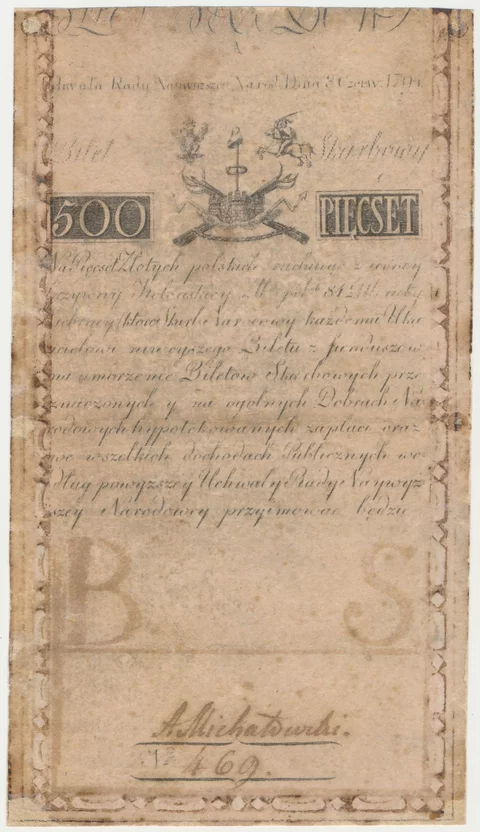 Uchwała Rady Naywyższey Narod: Dnia 8 Czerw: 1794.
Bilet Skarbowy
500 PIĘCSET
Na Pięcset Złotych polskich rachuiąc z
grzywny Kolonskiey Zł. pol. 84½
Skarb Narodowy każdemu Oka
zicielowi ninieyszego Biletu z funduszow
na umorzenie Biletow Skarbowych prze
znaczonych y na ogolnych Dobrach Na
rodowych hypotekowanych zapłaci oraz
we wszelkich dochodach Publicznych we
dług powyższey Uchwały Rady Naywyż
szey Narodowey przyimować będzie
B S
A Michałowski.
No 469.